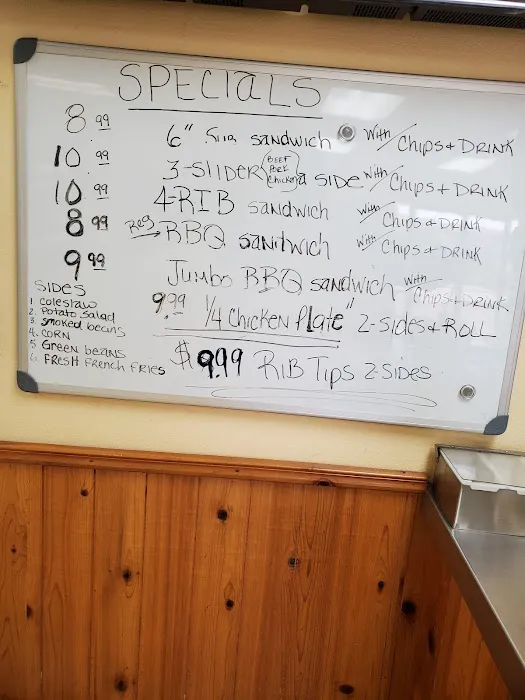 SPECIALS
8 99 6" sandwich with/ Chips + DRINK
10 99 3-SLIDER (BEEF PORK Chicken) a SIDE with/ Chips + DRINK
10 99 4-RIB sandwich with/ Chips + DRINK
8 99 Reg BBQ sandwich with/ Chips + DRINK
9 99 Jumbo BBQ sandwich with/ Chips + DRINK
9 99 1/4 Chicken Plate" 2-Sides + ROLL
$9.99 RIB Tips 2-SIDES
SIDES
1 coleslaw
2. Potato salad
3 smoked beans
4. CORN
5 Green beans
6. FResh FRench FRies